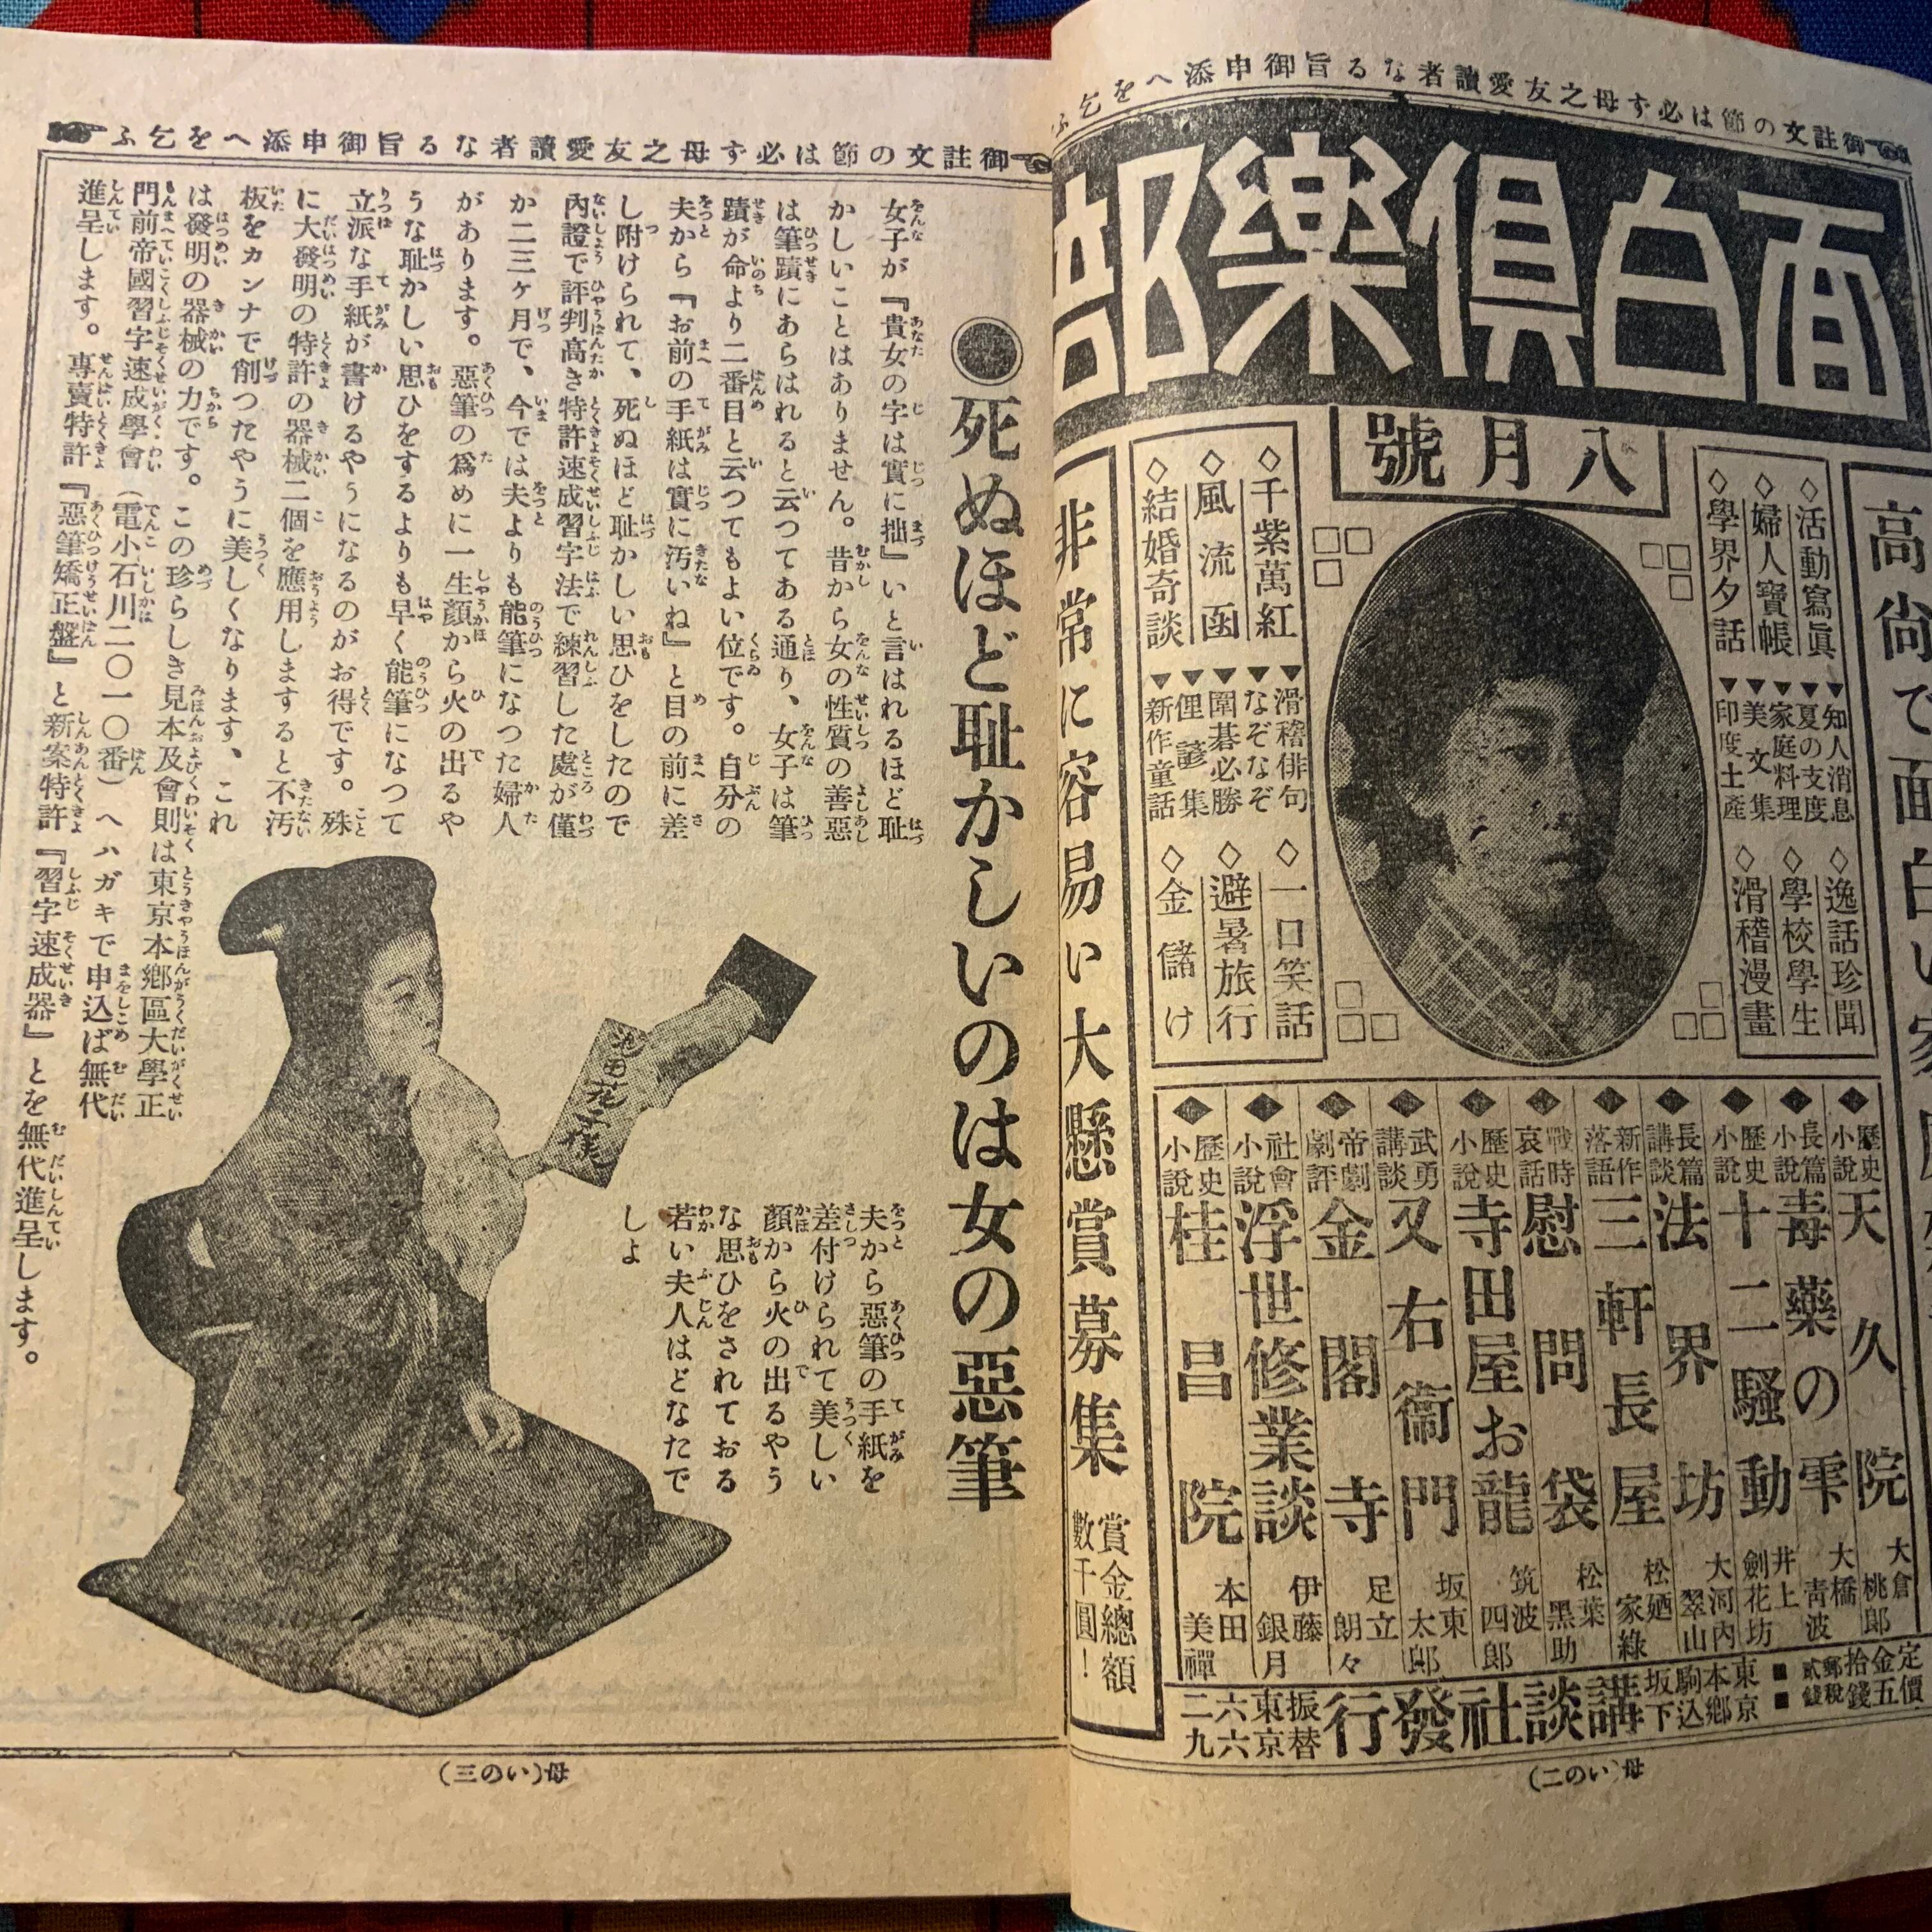 御註文の節は必ず母之友愛讀者なる旨御申添へを乞ふ
面白倶樂部
八月號
◇活動寫眞
◇婦人寶帳
◇學界夕話
▼知人消息
▼夏の支度
▼家庭料理
▼美文集
▼印度土產
◇逸話珍聞
◇學校學生
◇滑稽漫畫
◇千紫萬紅
◇風流函
◇結婚奇談
▼滑稽俳句
▼なぞなぞ
▼圍碁必勝
▼俚諺集
▼新作童話
◇一口笑話
◇避暑旅行
◇金儲け
◆歷史小說 天久院 大倉桃郎
◆長篇小說 毒藥の雫 大橋靑波
◆歷史小說 十二騷動 井上劍花坊
◆長篇講談 法界坊 大河內翠山
◆新作落語 三軒長屋 松廼家綠
◆戰時哀話 慰問袋 松葉黑助
◆歷史小說 寺田屋お龍 筑波四郎
◆武勇講談 又右衞門 坂東太郎
◆帝劇劇評 金閣寺 足立朗々
◆社會小說 浮世修業談 伊藤銀月
◆歷史小說 桂昌院 本田美禪
定價金拾五錢
郵稅貳錢
東京本鄕駒込坂下
講談社發行
振替東京六六二九
非常に容易い大懸賞募集 賞金總額數千圓!
母(いの二)
御註文の節は必ず母之友愛讀者なる旨御申添へを乞ふ
◉死ぬほど耻かしいのは女の惡筆
女子が『貴女の字は實に拙』いと言はれるほど耻
かしいことはありません。昔から女の性質の善惡
は筆蹟にあらはれると云つてある通り、女子は筆
蹟が命より二番目と云つてもよい位です。自分の
夫から『お前の手紙は實に汚いね』と目の前に差
し附けられて、死ぬほど耻かしい思ひをしたので
內證で評判高き特許速成習字法で練習した處が僅
か二三ヶ月で、今では夫よりも能筆になつた婦人
があります。惡筆の爲めに一生顏から火の出るや
うな耻かしい思ひをするよりも早く能筆になつて
立派な手紙が書けるやうになるのがお得です。殊
に大發明の特許の器械二個を應用しますると不汚
板をカンナで削つたやうに美しくなります、これ
は發明の器械の力です。この珍らしき見本及會則は東京本鄕區大學正
門前帝國習字速成學會(電小石川二〇一〇番)へハガキで申込ば無代
進呈します。專賣特許『惡筆矯正盤』と新案特許『習字速成器』とを無代進呈します。
池田花子樣
夫から惡筆の手紙を
差付けられて美しい
顏から火の出るやう
な思ひをされておる
若い夫人はどなたで
しよ
母(いの三)